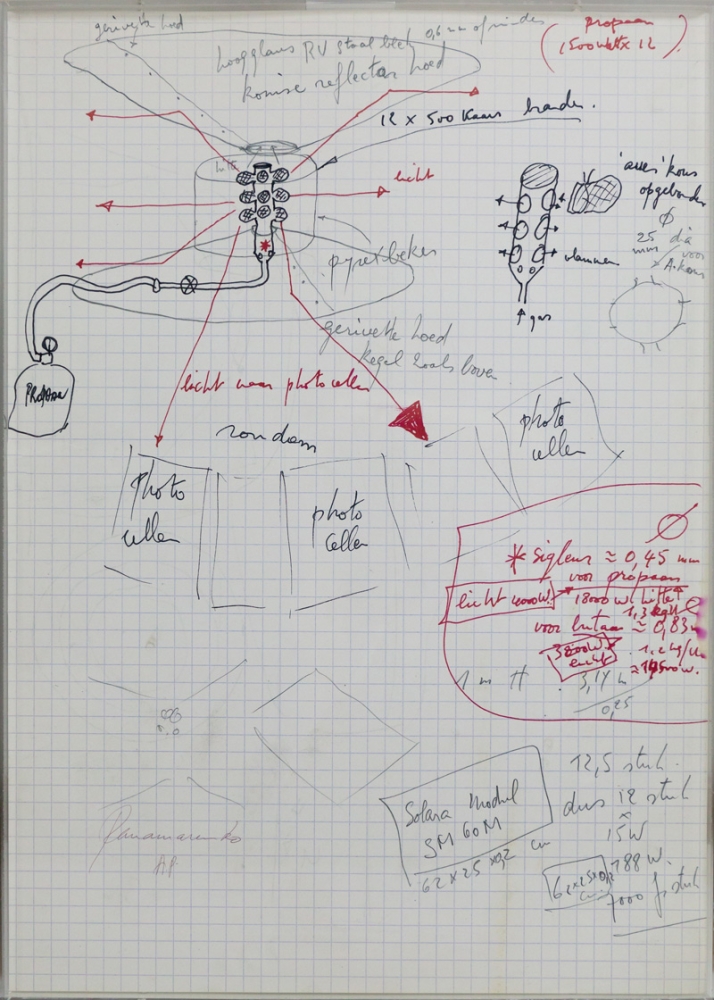 gerivette hoed
hoogglans RV staal blek 0,6 mm of minder
konise reflector hoed
propaan
(1500 watt x 12)
12 x 500 Kaars brander.
licht
'auer' kous
opgebonden
Ø
25 dia
mm voor
x A.kous
vlammen
↑ gas
pyrex beker
gerivette hoed
kegel zoals boven
PROPAAN
licht naar photocellen
rondom
photo
cellen
photo
cellen
photo
cellen
Ø
* sigleur ≈ 0,45 mm
voor propaan
licht 4000W. 18000 W. hitte
1,3 kg/u
voor butaan ≈ 0,83
3800W.
licht
1,2 kg/u
1 m H 3,14 m
0,25
12,5 stuk.
dus 12 stuk
x
15 W
188 W.
7000 f. stuk
Solara Modul
SM 60M
62 x 25 x 0,2 cm
62x25x0,2
cm
Panamarenko
AP